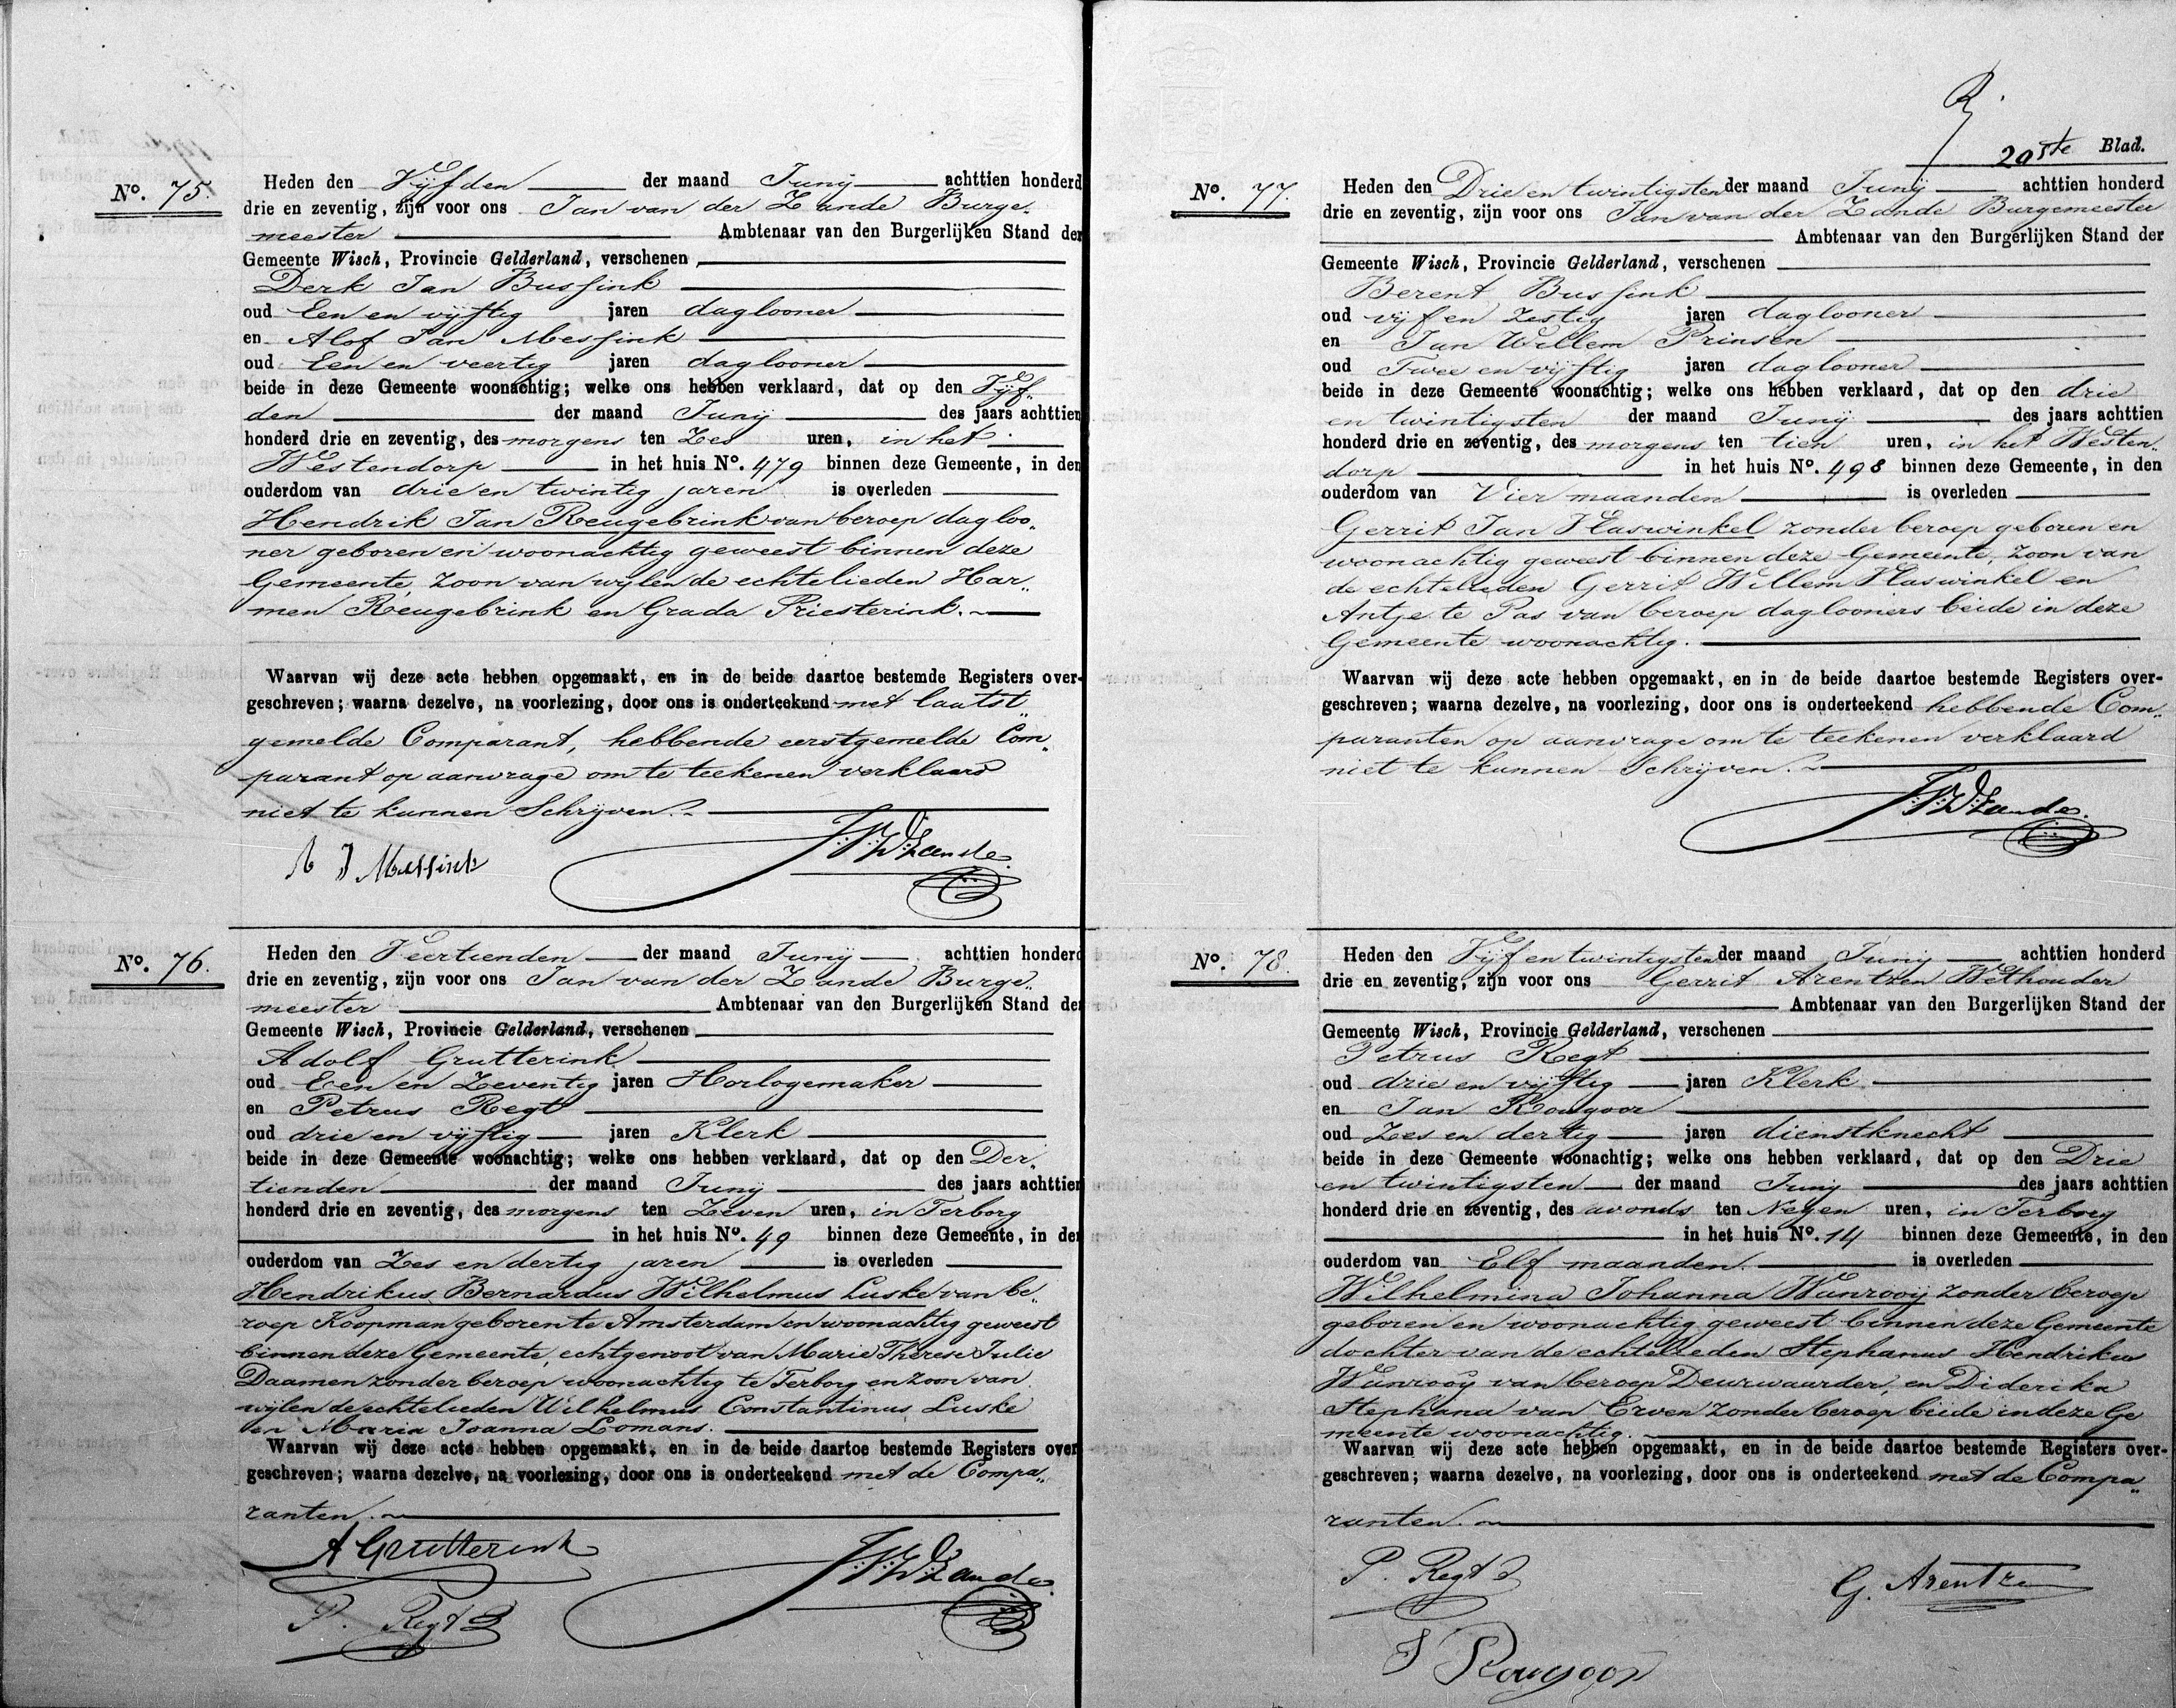 No. 75.
Heden den Vijfden der maand Junij achttien honderd
drie en zeventig, zijn voor ons Jan van der Zande Burge-
meester Ambtenaar van den Burgerlijken Stand der
Gemeente Wisch, Provincie Gelderland, verschenen
Derk Jan Bussink
oud Een en vijftig jaren daglooner
en Alof Jan Messink
oud Een en veertig jaren daglooner
beide in deze Gemeente woonachtig; welke ons hebben verklaard, dat op den Vijf-
den der maand Junij des jaars achttien
honderd drie en zeventig, des morgens ten Zes uren, in het
Westendorp in het huis No. 479 binnen deze Gemeente, in den
ouderdom van drie en twintig jaren is overleden
Hendrik Jan Reugebrink van beroep dagloo-
ner geboren en woonachtig geweest binnen deze
Gemeente, zoon van wijlen de echtelieden Har-
men Reugebrink en Grada Priesterink.
Waarvan wij deze acte hebben opgemaakt, en in de beide daartoe bestemde Registers over-
geschreven; waarna dezelve, na voorlezing, door ons is onderteekend met laatst
gemelde Comparant, hebbende eerstgemelde Com-
parant op aanvrage om te teekenen verklaard
niet te kunnen Schrijven.
A J Messink J.V.D.Zande.
No. 76.
Heden den Veertienden der maand Junij achttien honderd
drie en zeventig, zijn voor ons Jan van der Zande Burge-
meester Ambtenaar van den Burgerlijken Stand der
Gemeente Wisch, Provincie Gelderland, verschenen
Adolf Grutterink
oud Een en Zeventig jaren Horlogemaker
en Petrus Regt
oud drie en vijftig jaren Klerk
beide in deze Gemeente woonachtig; welke ons hebben verklaard, dat op den Der-
tienden der maand Junij des jaars achttien
honderd drie en zeventig, des morgens ten Zeven uren, in Terborg
in het huis No. 49 binnen deze Gemeente, in den
ouderdom van Zes en dertig jaren is overleden
Hendrikus Bernardus Wilhelmus Luske van be-
roep Koopman geboren te Amsterdam en woonachtig geweest
binnen deze Gemeente, echtgenoot van Marie Therese Julie
Daamen zonder beroep woonachtig te Terborg en zoon van
wijlen de echtelieden Wilhelmus Constantinus Luske
en Maria Joanna Lomans.
Waarvan wij deze acte hebben opgemaakt, en in de beide daartoe bestemde Registers over
geschreven; waarna dezelve, na voorlezing, door ons is onderteekend met de Compa-
ranten.
A Grutterink J.V.D.Zande.
P. Regt
20ste Blad.
No. 77.
Heden den Drie en twintigsten der maand Junij achttien honderd
drie en zeventig, zijn voor ons Jan van der Zande Burgemeester
Ambtenaar van den Burgerlijken Stand der
Gemeente Wisch, Provincie Gelderland, verschenen
Berent Bussink
oud vijf en Zestig jaren daglooner
en Jan Willem Prinsen
oud Twee en vijftig jaren daglooner
beide in deze Gemeente woonachtig; welke ons hebben verklaard, dat op den drie
en twintigsten der maand Junij des jaars achttien
honderd drie en zeventig, des morgens ten tien uren, in het Westen-
dorp in het huis No. 498 binnen deze Gemeente, in den
ouderdom van Vier maanden is overleden
Gerrit Jan Haswinkel zonder beroep geboren en
woonachtig geweest binnen deze Gemeente, zoon van
de echtelieden Gerrit Willem Haswinkel en
Antje te Pas van beroep daglooners beide in deze
Gemeente woonachtig.
Waarvan wij deze acte hebben opgemaakt, en in de beide daartoe bestemde Registers over-
geschreven; waarna dezelve, na voorlezing, door ons is onderteekend hebbende Com-
paranten op aanvrage om te teekenen verklaard
niet te kunnen Schrijven.
J.V.D.Zande.
No. 78.
Heden den Vijf en twintigsten der maand Junij achttien honderd
drie en zeventig, zijn voor ons Gerrit Arentzen Wethouder
Ambtenaar van den Burgerlijken Stand der
Gemeente Wisch, Provincie Gelderland, verschenen
Petrus Regt
oud drie en vijftig jaren Klerk
en Jan Rougoor
oud Zes en dertig jaren dienstknecht
beide in deze Gemeente woonachtig; welke ons hebben verklaard, dat op den Drie
en twintigsten der maand Junij des jaars achttien
honderd drie en zeventig, des avonds ten Negen uren, in Terborg
in het huis No. 14 binnen deze Gemeente, in den
ouderdom van Elf maanden is overleden
Wilhelmina Johanna Wanrooij zonder beroep
geboren en woonachtig geweest binnen deze Gemeente
dochter van de echtelieden Stephanus Hendrikus
Wanrooy van beroep Deurwaarder, en Diderika
Stephana van Erven zonder beroep beide in deze Ge
meente woonachtig.
Waarvan wij deze acte hebben opgemaakt, en in de beide daartoe bestemde Registers over-
geschreven; waarna dezelve, na voorlezing, door ons is onderteekend met de Compa-
ranten.
P. Regt G. Arentzen
J Rougoor